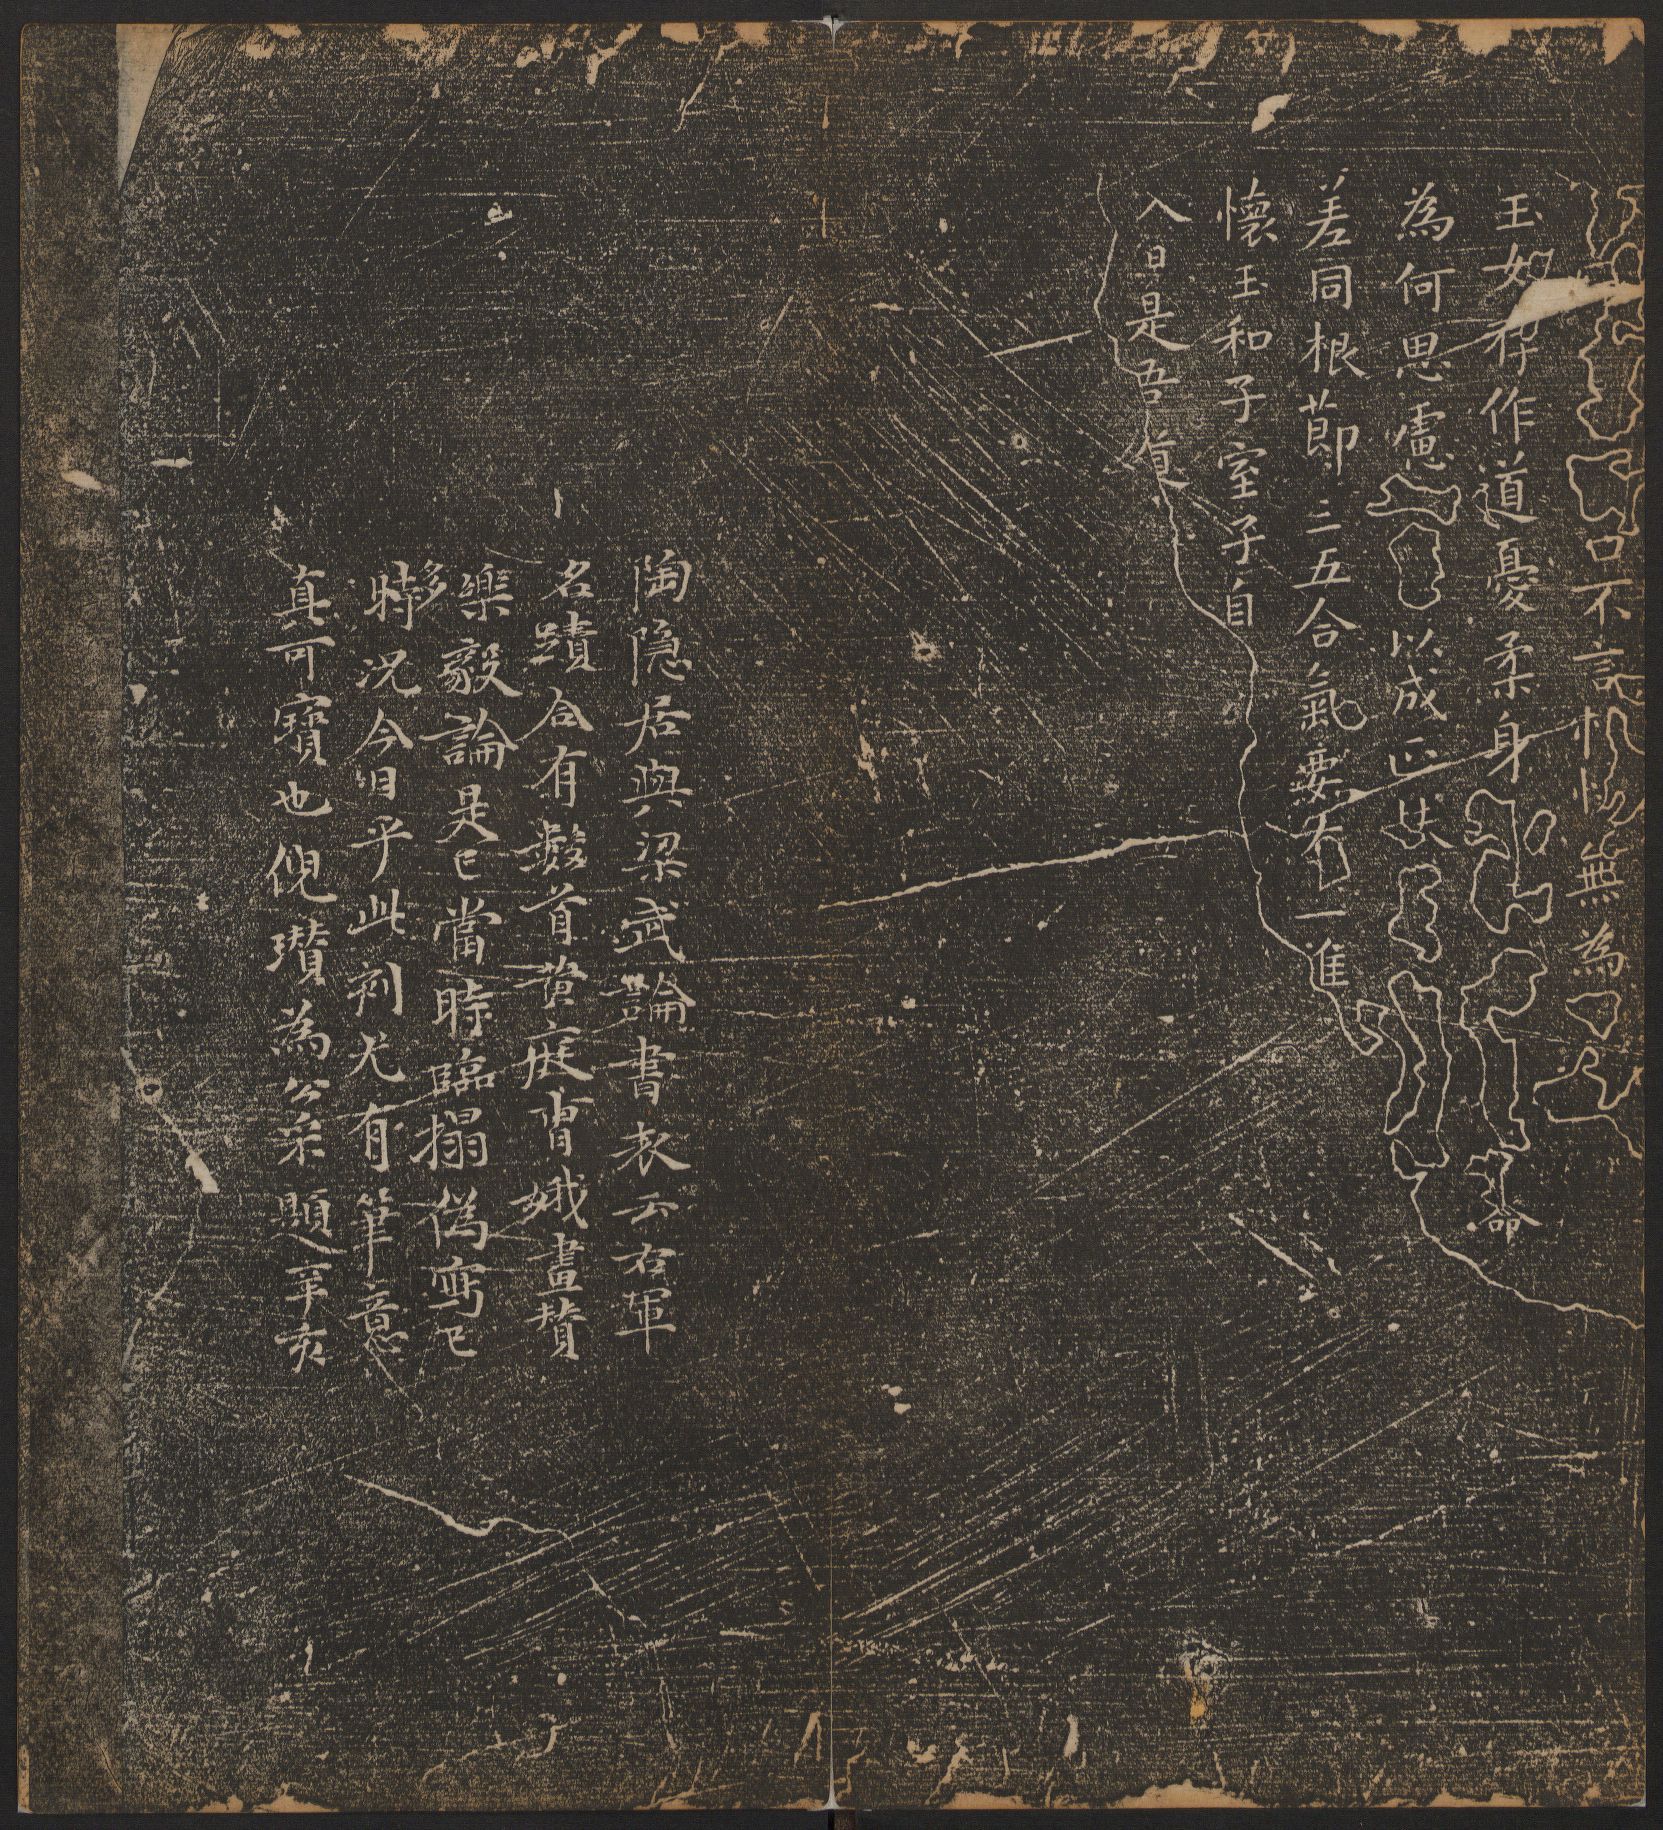 口不言
無為
玉女存作道憂柔身
命
為何思慮
以成
共
差同根節三五合氣要
一
進
懷玉和子室子自
入日是吾
陶隐居與梁武論書表云右軍
名蹟合有數首黃庭曹娥畫贊
樂毅論是已當時臨搨偽寫已
多
時況今日乎此刻尤有筆意
真可寶也倪瓚為公采題辛亥